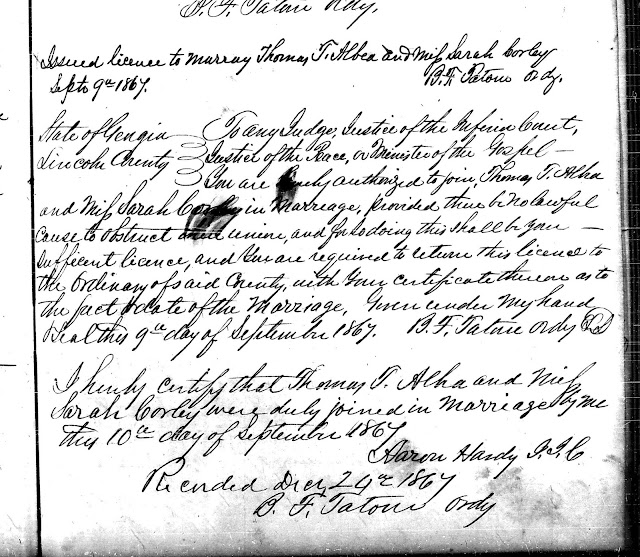 B. F. Tatom Ordy.
Issued licence to murray Thomas T. Albea and Miss Sarah Corley
Sept. 9th 1867. B. F. Tatom Ordy.
State of Georgia To any Judge, Justice of the Inferior Court,
Lincoln County Justice of the Peace, or Minister of the Gospel —
You are hereby authorized to join, Thomas T. Albea
and Miss Sarah Corley in Marriage, provided there be no lawful
cause to obstruct union, and for so doing this shall be your —
sufficent licence, and you are required to return this licence to
the ordinary of said County, with your certificate thereon as to
the fact & date of the Marriage, Given under My hand
Seal this 9th day of September 1867. B. F. Tatom Ordy
I hereby certify that Thomas T. Albea and Miss
Sarah Corley were duly joined in Marriage by me
this 10th day of September 1867
Aaron Hardy J.I.C
Recorded Decr 24th 1867
B. F. Tatom Ordy